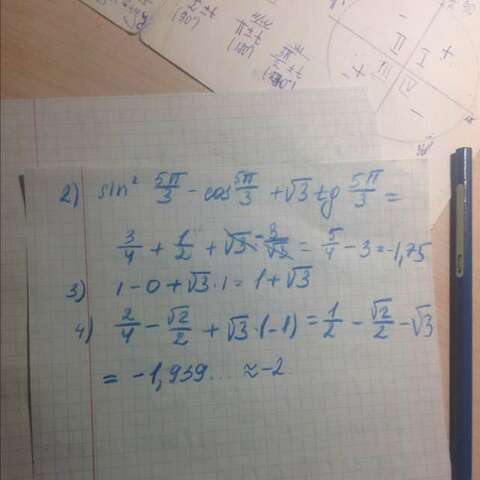 2) sin² 5π/3 - cos 5π/3 + √3 tg 5π/3 =
3/4 + 1/2 + √3 · -3/√3 = 5/4 - 3 = -1,75
3) 1 - 0 + √3 · 1 = 1 + √3
4) 2/4 - √2/2 + √3 · (-1) = 1/2 - √2/2 - √3
= -1,939... ≈ -2